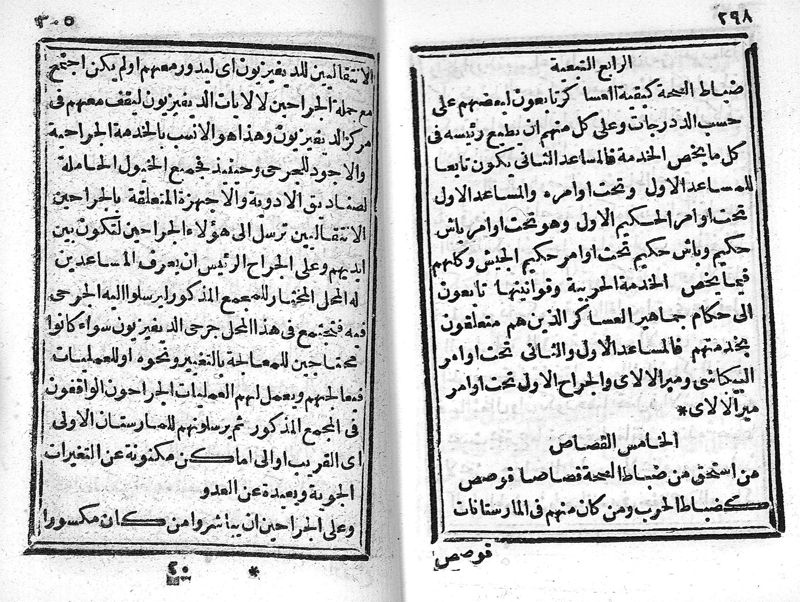 ٢٩٨
الرابع التبعية
ضباط الصحة كبقية العساكر تابعون لبعضهم على
حسب الدرجات وعلى كل منهم ان يطيع رئيسه فى
كل ما يخص الخدمة فالمساعد الثانى يكون تابعا
للمساعد الاول وتحت اوامره والمساعد الاول
تحت اوامر الحكيم الاول وهو تحت اوامر باش
حكيم وباش حكيم تحت اوامر حكيم الجيش وكلهم
فيما يخص الخدمة الحربية وقوانينها تابعون
الى حكام جماهير العساكر الذين هم متعلقون
بخدمتهم فالمساعد الاول والثانى تحت اوامر
البيكباشى وميرالالاى والجراح الاول تحت اوامر
ميرالالاى *
الخامس القصاص
من استحق من ضباط الصحة قصاصا قوصص
كضباط الحرب ومن كان منهم فى المارستانات
قوصص
٣٠٥
الانتقاليين للديفيزيون اى ليدور معهم اولم يكن اجتمع
مع جملة الجراحين لالايات الديفيزيون ليقف معهم فى
مركز الديفيزيون وهذا هو الانسب بالخدمة الجراحية
والاجود للجرحى وحينئذ فجميع الخيول الحاملة
لصناديق الادوية والاجهزة المتعلقة بالجراحين
الانتقاليين ترسل الى هؤلاء الجراحين لتكون بين
ايديهم وعلى الجراح الرئيس ان يعرف المساعدين
له المحل المختار للمجمع المذكور ليرسلوا اليه الجرحى
فيه فتجتمع فى هذا المحل جرحى الديفيزيون سواء كانوا
محتاجين للمعالجة بالتغيير ونحوه او للعمليات
فيعالجهم ويعمل لهم العمليات الجراحون الواقفون
فى المجمع المذكور ثم يرسلونهم للمارستان الاولى
اى القريب او الى اماكن مكنونة عن التغيرات
الجوية وبعيدة عن العدو
وعلى الجراحين ان يباشروا من كان مكسورا
٢٠ *